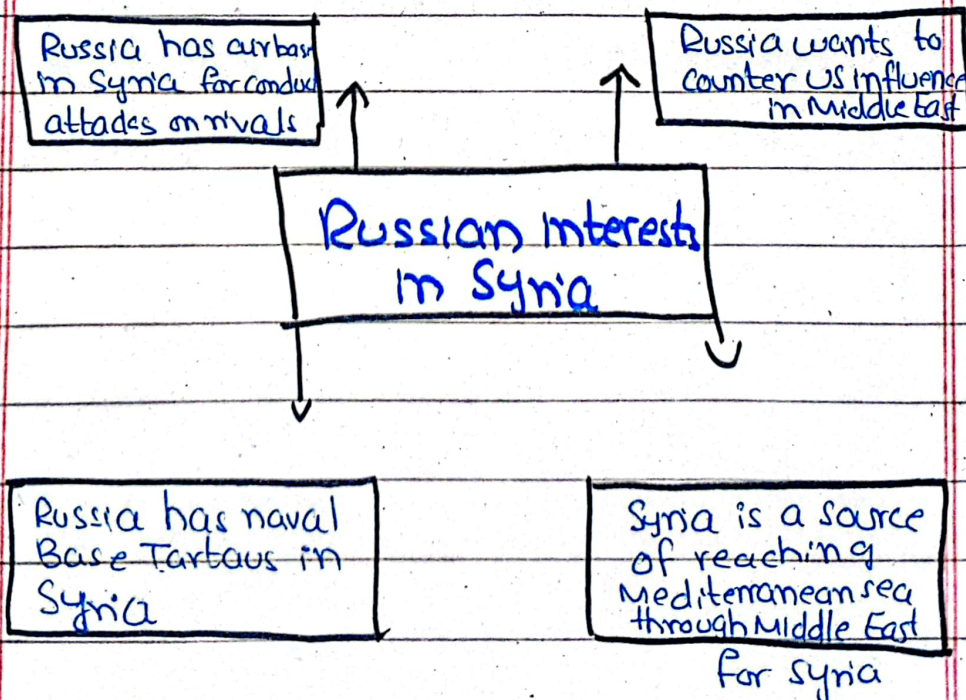 Russia has airbase
in Syria for conduct
attades on rivals
Russia wants to
counter US influence
in Middle East
Russian interests
in Syria
Russia has naval
Base Tartaus in
Syria
Syria is a source
of reaching
Mediterranean sea
through Middle East
for syria